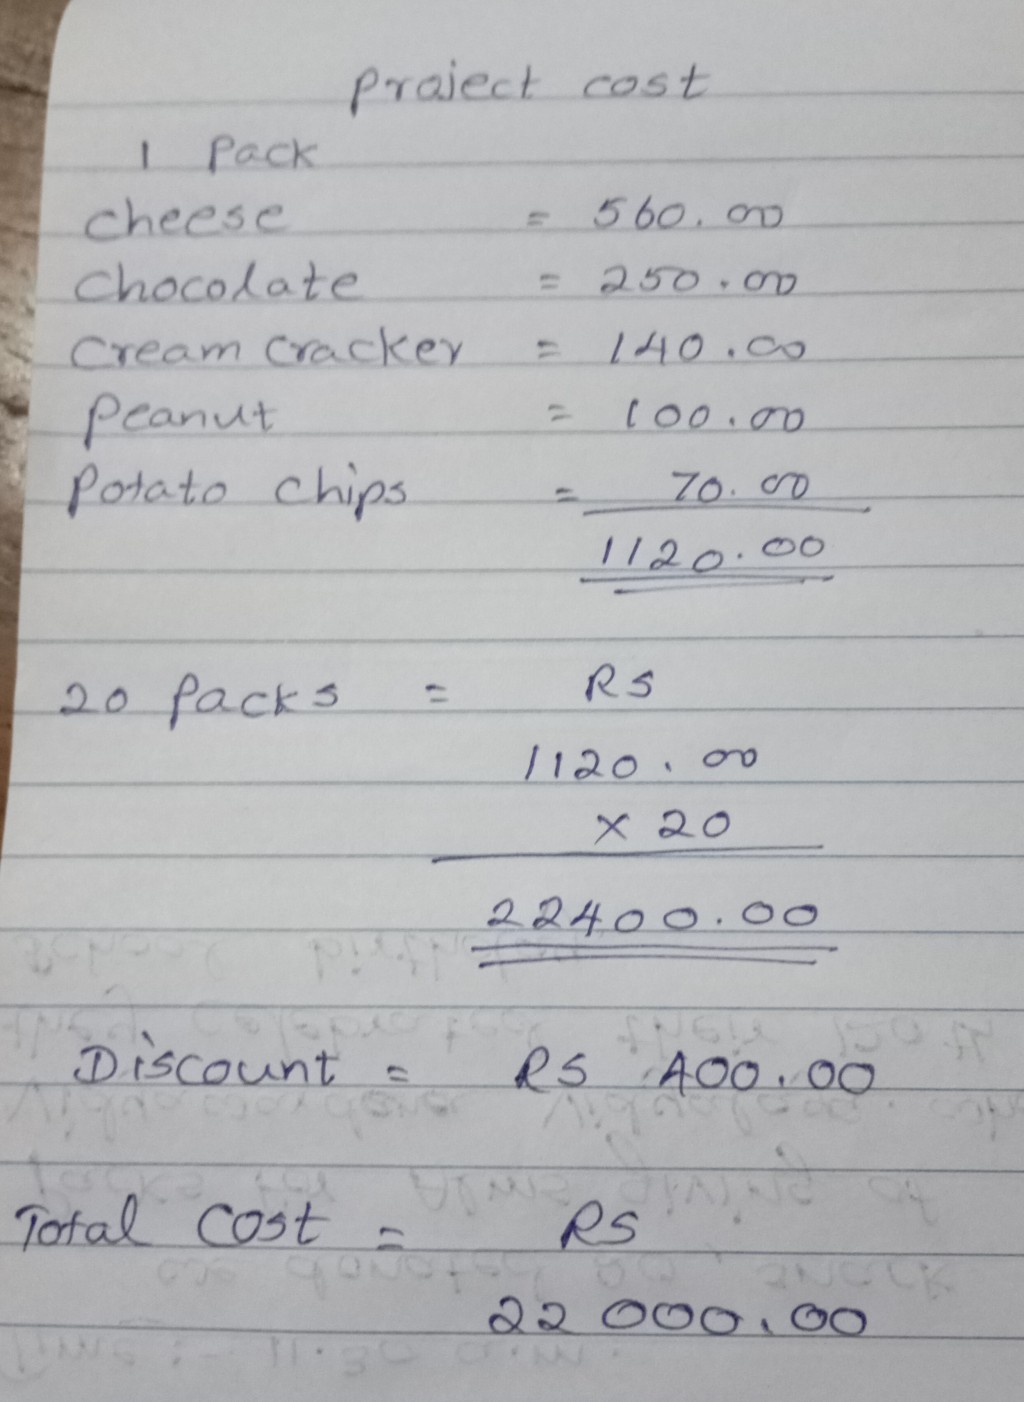 Project cost
1 Pack
cheese = 560.00
chocolate = 250.00
cream cracker = 140.00
Peanut = 100.00
Potato chips = 70.00
1120.00
20 Packs = RS
1120.00
x 20
22400.00
Discount = RS 400.00
Total Cost = RS
22 000.00